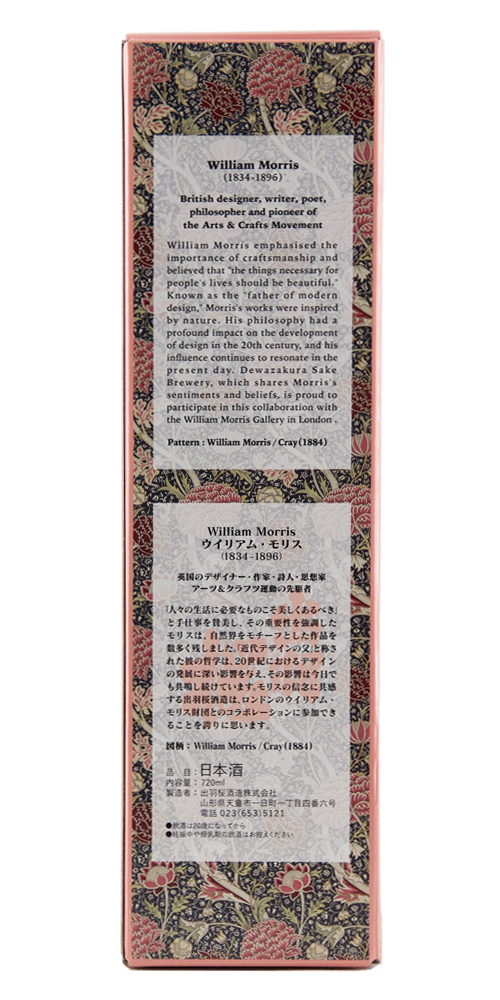 William Morris
(1834-1896)
British designer, writer, poet,
philosopher and pioneer of
the Arts & Crafts Movement
William Morris emphasised the
importance of craftsmanship and
believed that "the things necessary for
people's lives should be beautiful."
Known as the "father of modern
design," Morris's works were inspired
by nature. His philosophy had a
profound impact on the development
of design in the 20th century, and his
influence continues to resonate in the
present day. Dewazakura Sake
Brewery, which shares Morris's
sentiments and beliefs, is proud to
participate in this collaboration with
the William Morris Gallery in London .
Pattern : William Morris / Cray(1884)
William Morris
ウイリアム・モリス
(1834-1896)
英国のデザイナー・作家・詩人・思想家
アーツ&クラフツ運動の先駆者
「人々の生活に必要なものこそ美しくあるべき」
と手仕事を賛美し、その重要性を強調した
モリスは、自然界をモチーフとした作品を
数多く残しました。「近代デザインの父」と称さ
れた彼の哲学は、20世紀におけるデザイン
の発展に深い影響を与え、その影響は今日で
も共鳴し続けています。モリスの信念に共感
する出羽桜酒造は、ロンドンのウイリアム・
モリス財団とのコラボレーションに参加でき
ることを誇りに思います。
図柄：William Morris / Cray(1884)
品　目：日本酒
内容量：720ml
製造者：出羽桜酒造株式会社
山形県天童市一日町一丁目四番六号
電話 023(653)5121
●飲酒は20歳になってから
●妊娠中や授乳期の飲酒はお控えください